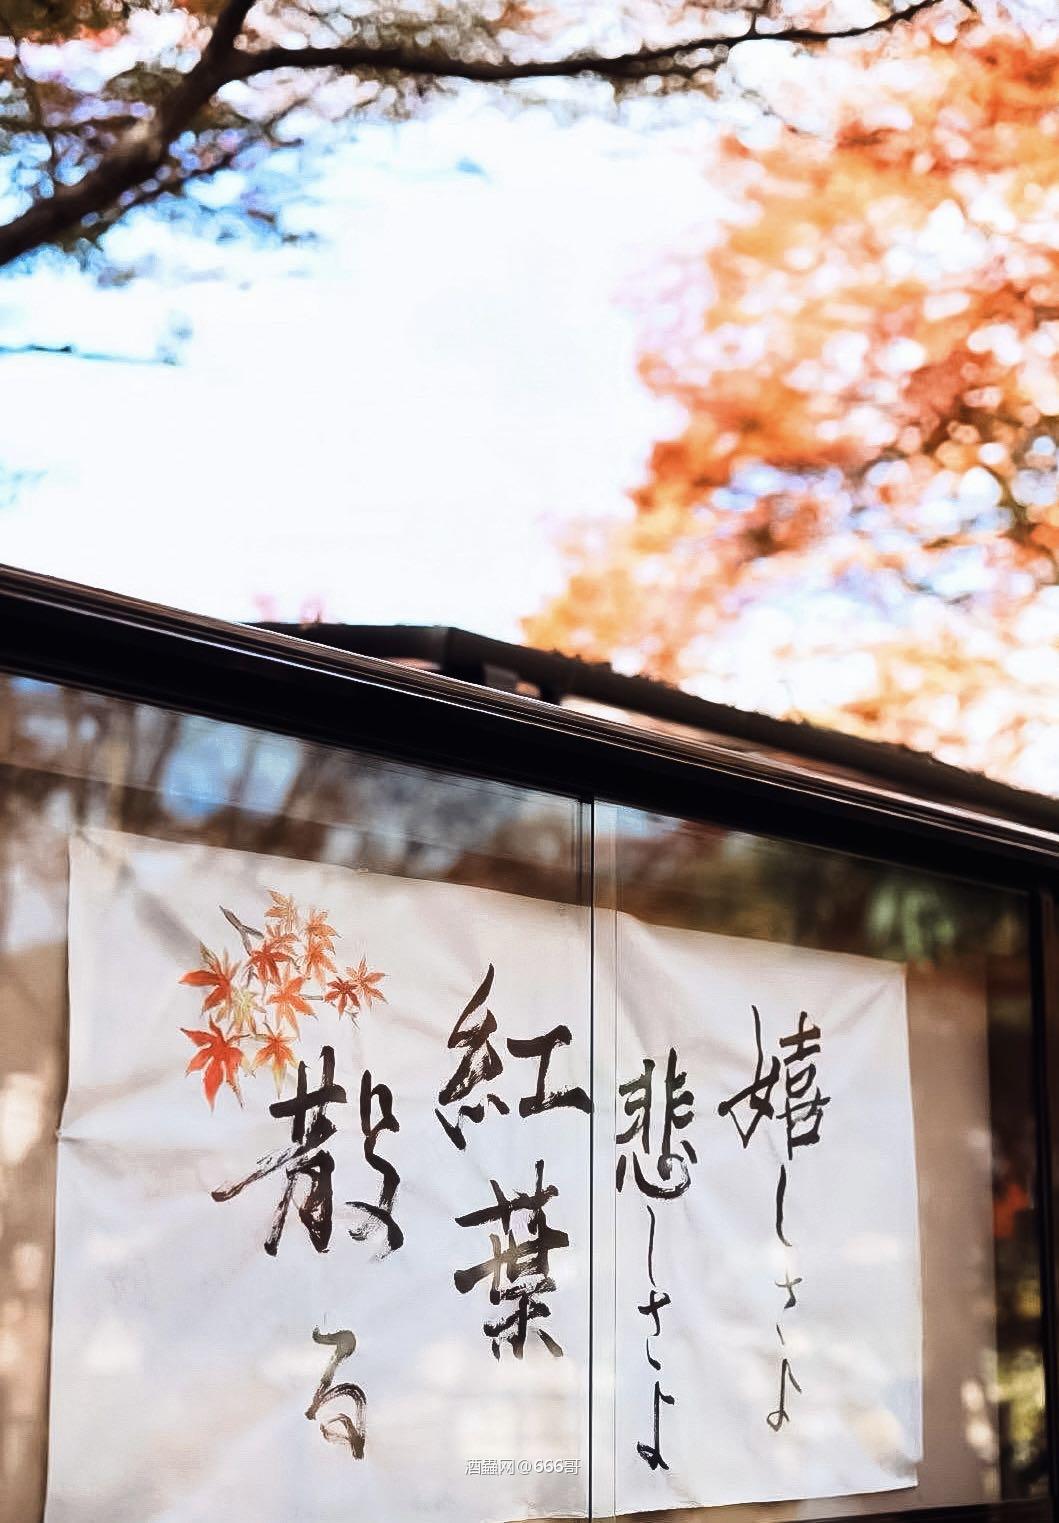 嬉しさよ
悲しさよ
紅葉
散る
酒蟲网@666哥